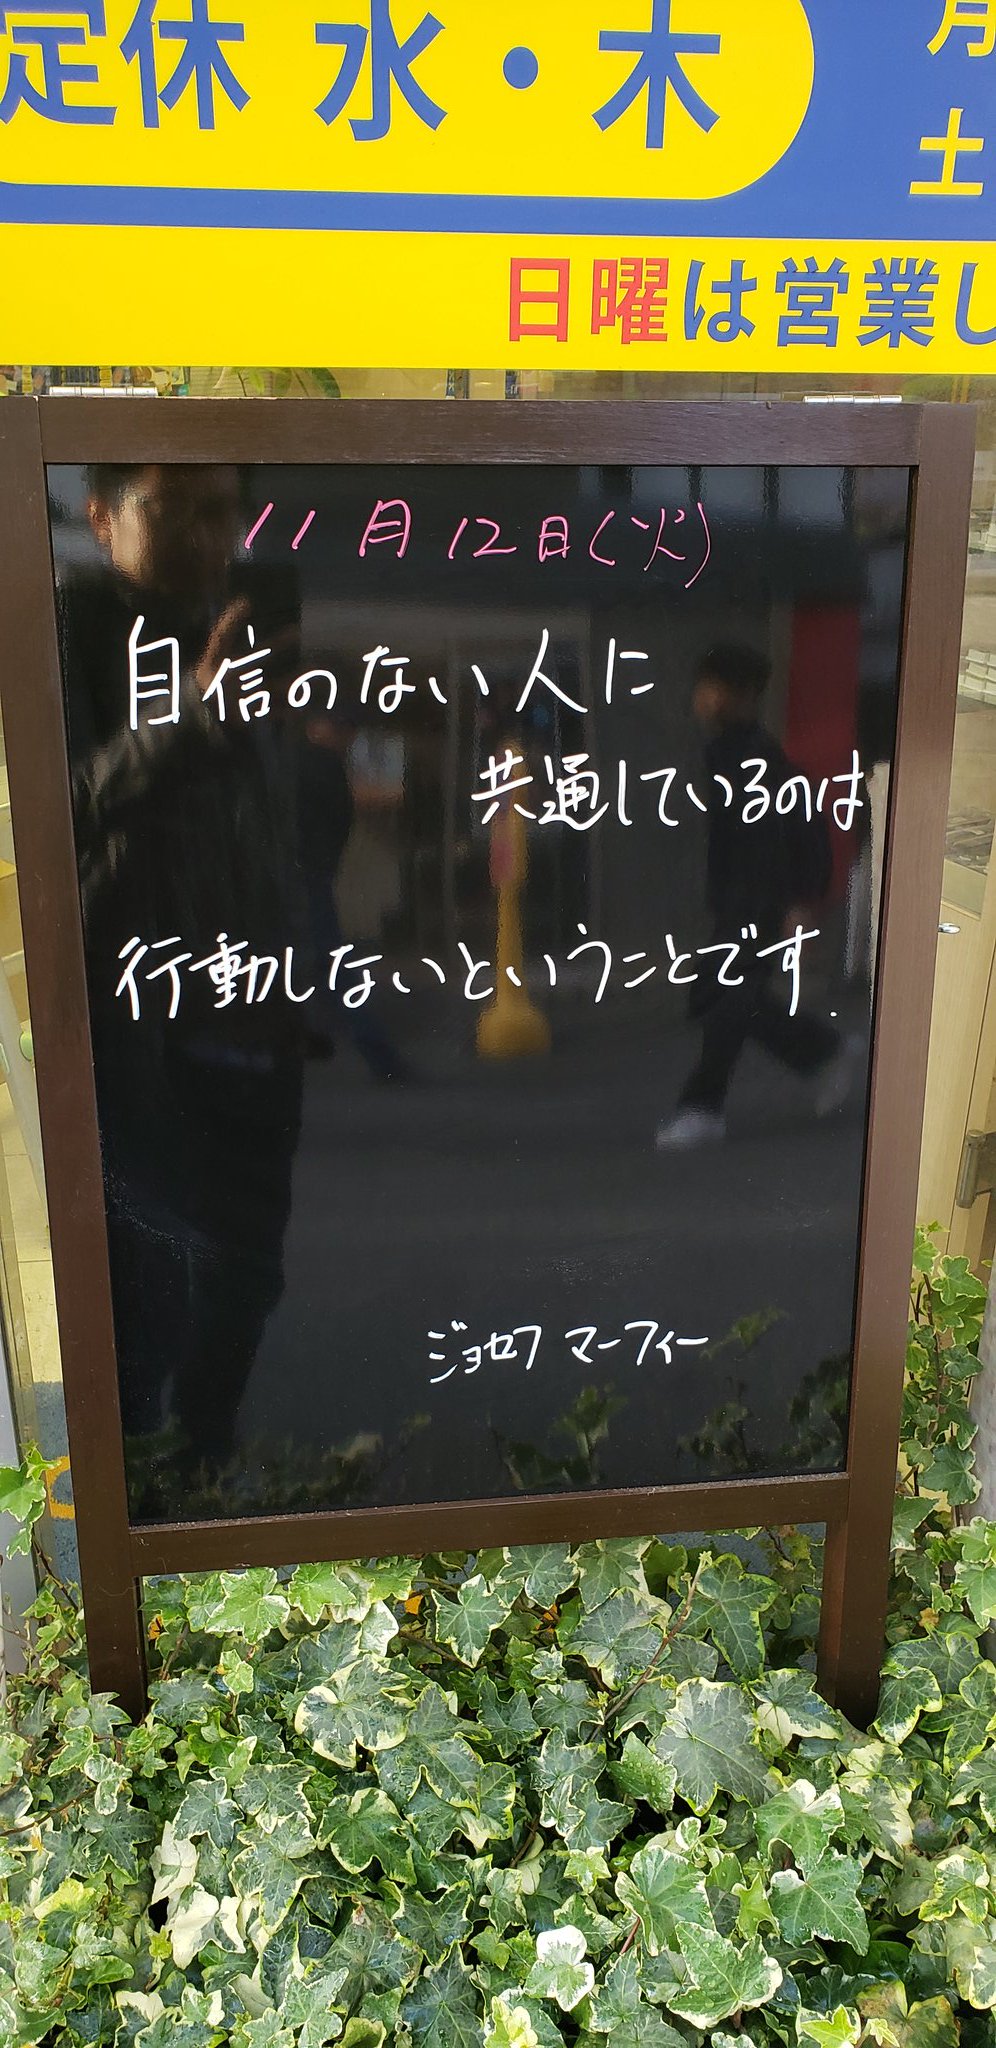 定休 水・木
月
土
日曜は営業し
11月12日(火)
自信のない人に
共通しているのは
行動しないということです.
ジョセフ マーフィー